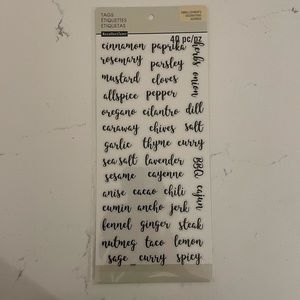 TAGS
ETIQUETTES
ETIQUETAS
Recollections
40 pc/pz
cinnamon paprika
herbs
rosemary parsley
onion
mustard cloves
allspice pepper
oregano cilantro dill
caraway chives salt
garlic thyme curry
sea salt lavender
BBQ
sesame cayenne
cajun
anise cacao chili
cumin ancho jerk
fennel ginger steak
nutmeg taco lemon
sage curry spicy